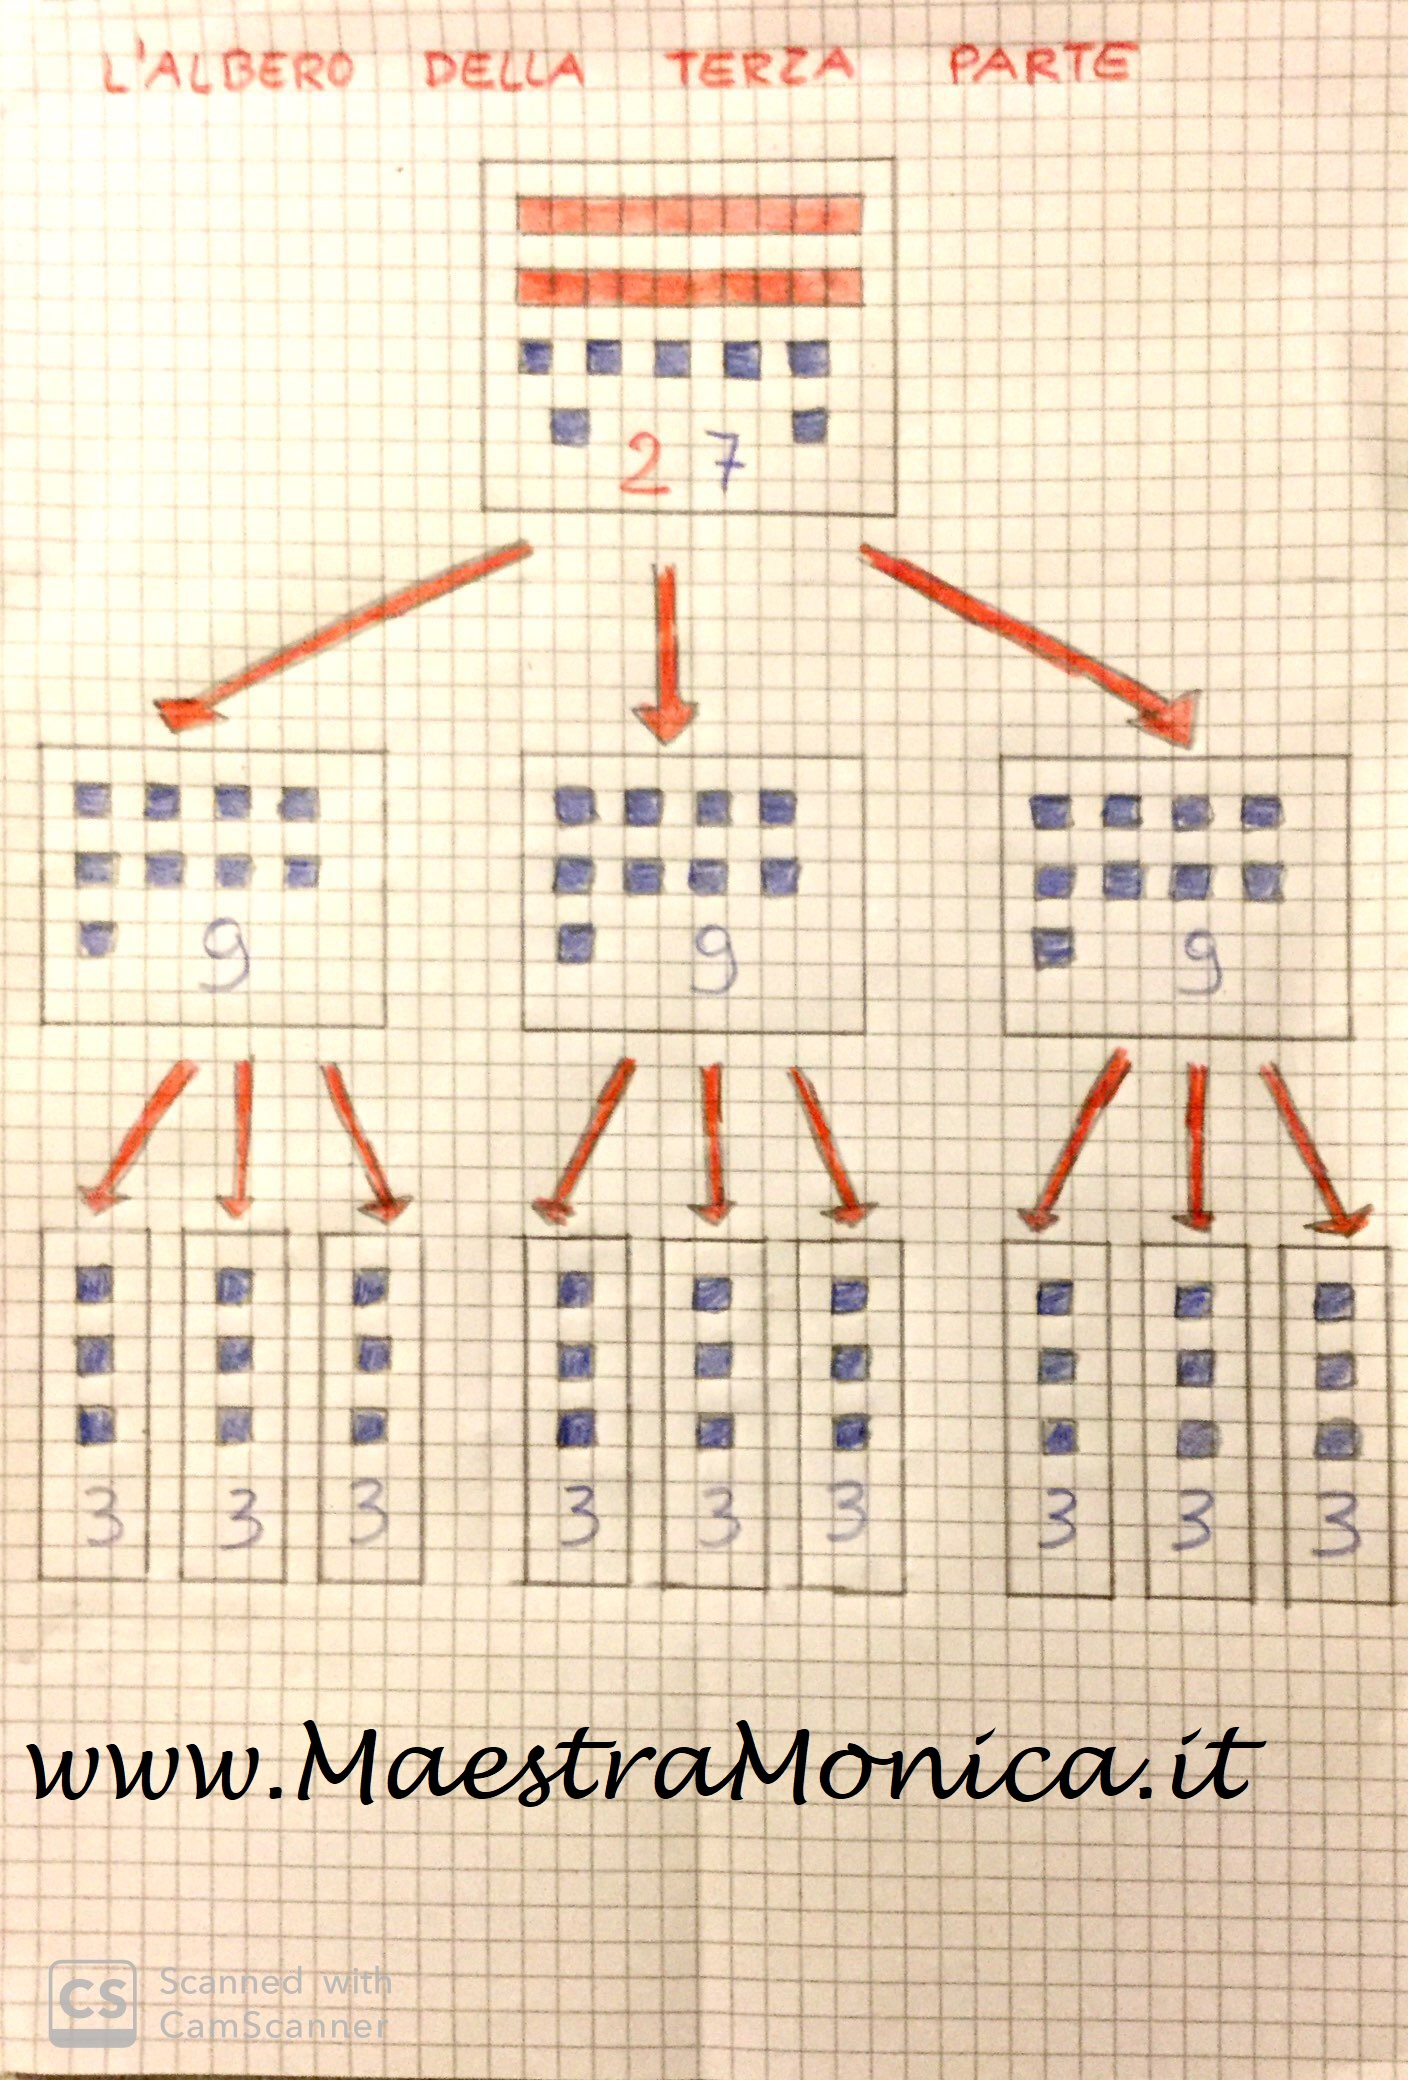 L'ALBERO DELLA TERZA PARTE
2 7
9 9 9
3 3 3 3 3 3 3 3 3
www.MaestraMonica.it
CS Scanned with
CamScanner